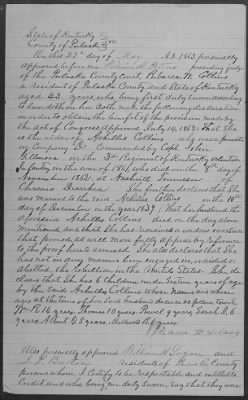 State of Kentucky
County of Pulaski
On this 22nd day of May A.D. 1863, personally
appeared before me presiding judge
of the Pulaski County Court, Rebecca W. Collins
a resident of Pulaski County and State of Kentucky
aged 43 years, who being first duly sworn according
to law doth on her oath make the following declaration
in order to obtain the benefit of the provision made by
the act of Congress approved July 14, 1862. That she
is the widow of Achilles Collins who was private
in Company D. Commanded by Capt. John
in the 3rd Regiment of Kentucky volunteer
Infantry in the war of 1861, who died on the day of
November 1862, at Nashville Tennessee
Chronic Diarrhea She further declares that she
was married to the said Achilles Collins on the 18th
day of December in the year 1837; that her husband the
aforesaid Achilles Collins died on the day above
mentioned, and that she has remained a widow ever since
that period, as will more fully appear by reference
to the proof hereto annexed. She also declares that she
has not in any manner been engaged in, or aided or
abetted, the rebellion in the United States. She de
clares that she has 6 children under sixteen years of age
by the said Achilles Collins whose names and whose
ages at the time of her said husband's decease as follows towit
Wm. R. 16 years, Thomas 12 years, years, Sarah A. 6
years, 3 years,
Rebecca W. Collins
Also personally appeared William H. Logan and
residents of Pulaski County
persons whom I certify to be respectable and entitled to
credit, and who, being by me duly sworn, say that they were